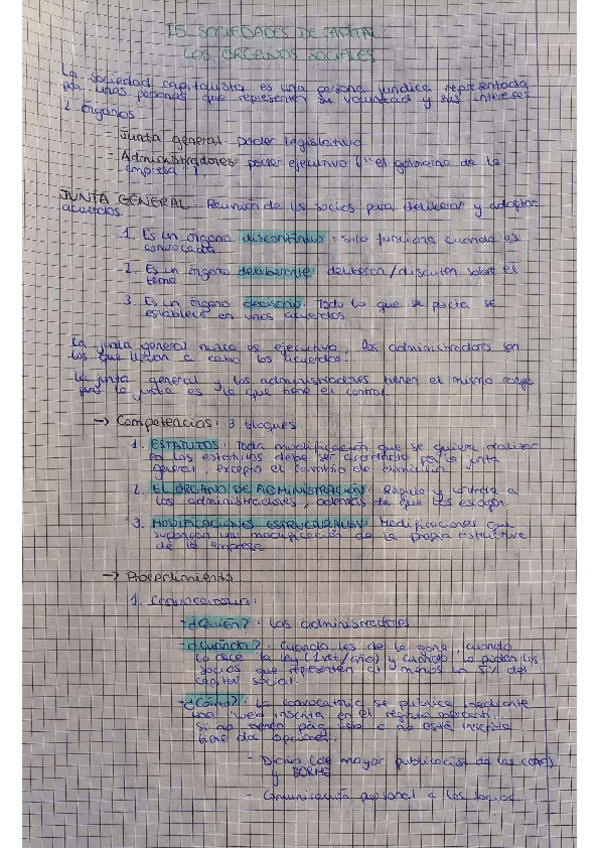 T5. SOCIEDADES DE CAPITAL
LOS ÓRGANOS SOCIALES
La sociedad capitalista es una persona jurídica representada
por unas personas que representen su voluntad y sus intereses
2 órganos
- Junta general: poder legislativo
- Administradores: poder ejecutivo ("el gobierno de la
empresa")
JUNTA GENERAL: Reunión de los socios para deliberar y adoptar
acuerdos.
1. Es un órgano discontinuo: solo funciona cuando es
convocada
2. Es un órgano deliberante: delibera/discuten sobre el
tema
3. Es un órgano decisorio: Todo lo que se pacta se
establece en unos acuerdos
La junta general nunca es ejecutiva, los administradores son
los que llevan a cabo los acuerdos.
La junta general y los administradores tienen el mismo rango
pero la junta es la que tiene el control.
→ Competencias: 3 bloques
1. ESTATUTOS: Toda modificación que se quiera realizar
en los estatutos debe ser acordado por la junta
general, excepto el cambio de domicilio.
2. EL ÓRGANO DE ADMINISTRACIÓN: Regula y controla a
los administradores, además de que los escogen
3. MODIFICACIONES ESTRUCTURALES: Modificaciones que
supongan una modificación de la propia estructura
de la empresa
→ Procedimiento:
1. Convocatoria:
- ¿Quién?: Los administradores
- ¿Cuándo?: Cuando les de la gana, cuando
lo dice la ley (1 vez/año) y cuando lo piden los
socios que representen al menos un 5% del
capital social.
- ¿Cómo?: La convocatoria se publica mediante
una web inscrita en el registro mercantil.
Si no tienen pág. web o no está inscrita
tiene dos opciones:
- Diario de mayor publicación de las
y BORME
- Comunicación personal a los socios